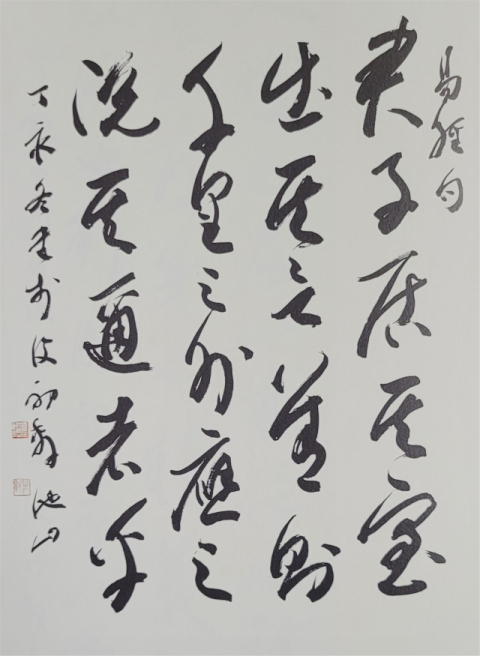 易経句
君子居其室
出其言善則
千里之外應之
況其邇者乎
丁亥冬書於
池田